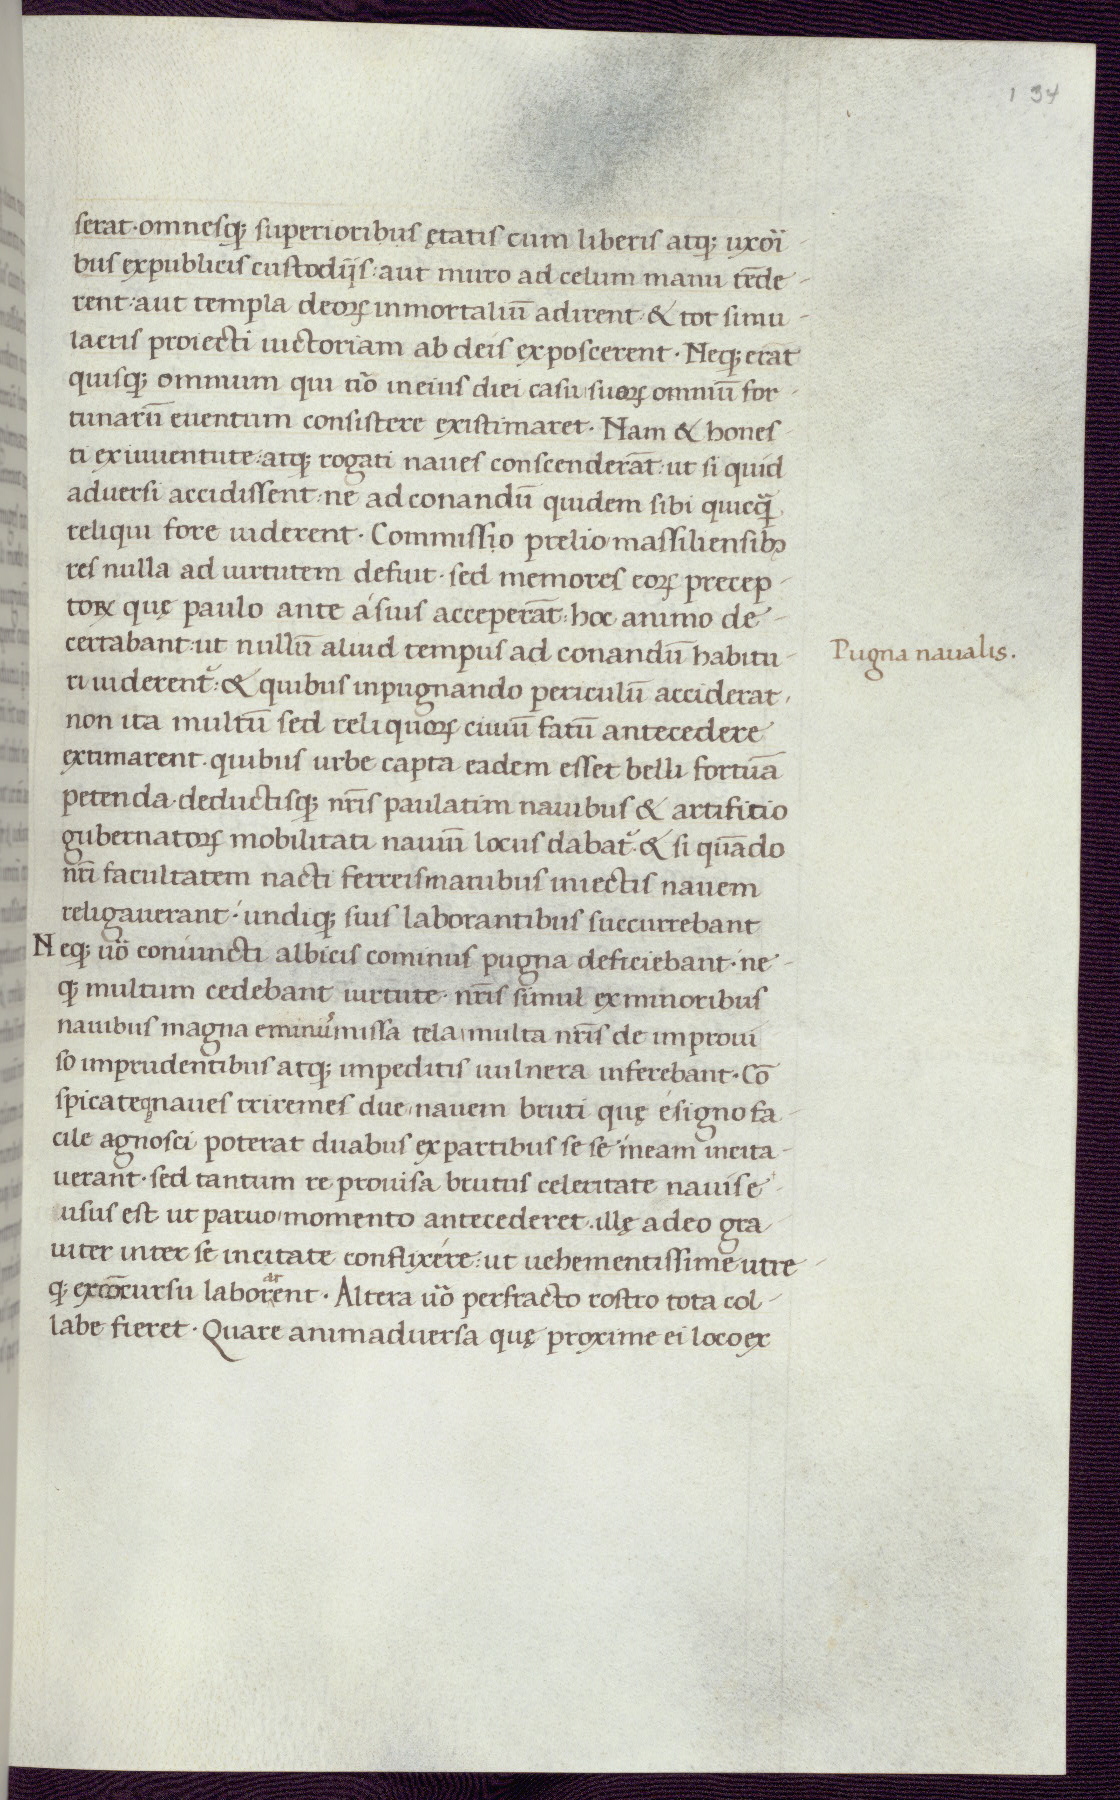 134
serat · omnesq; superioribus ętatis cum liberis atq; uxoı̄
bus expublicis custodiis : aut muro ad celum manu tēde
rent : aut templa deoꝝ inmortaliū adirent · & tot simu
lacris proiecti uictoriam ab deis exposcerent · Neq; erat
quisq; omnium qui nō in eius diei casu suoꝝ omniū for
tunarū euentum consistere existimaret · Nam & hones
ti ex iuuentute : atq; rogati naues conscenderāt : ut si quid
aduersi accidissent : ne ad conandū quidem sibi quicq̄
reliqui fore uiderent · Commissio prelio massiliensibꝫ
res nulla ad uirtutem defuit · sed memores eoꝝ precep
toꝝ quę paulo ante á suis acceperāt : hoc animo de
certabant : ut nullū aliud tempus ad conandū habitu
Pugna naualis .
ri uiderent᷑ : & quibus inpugnando periculū acciderat ,
non ita multū sed reliquoꝝ ciuiū fatū antecedere
extimarent . quibus urbe capta eadem esset belli fortūa
petenda · deductisq; nr̄is paulatim nauibus & artifitio
gubernatoꝝ mobilitati nauiū locus dabat᷑ · & si quādo
nr̄i facultatem nacti ferreismanibus iniectis nauem
religauerant · undiq; suis laborantibus succurrebant
Neq; uō coniuncti albicis cominus pugna deficiebant · ne
q; multum cedebant uirtute · nr̄is simul ex minoribus
nauibus magna eminus missa tela multa nr̄is de improui
so imprudentibus atq; impeditis uulnera inferebant · Cō
spicateq; naues triremes due nauem bruti quę é signo fa
cile agnosci poterat duabus ex partibus se se ineam incita
uerant · sed tantum re prouisa brutus celeritate nauis e
usus est ut paruo momento antecederet . illę adeo gra
uiter inter se incitate conflixére : ut uehementissime utre
q; excōcursu laborarent · Altera uō perfracto rostro tota col
labe fieret · Quare animaduersa quę proxime ei loco ex